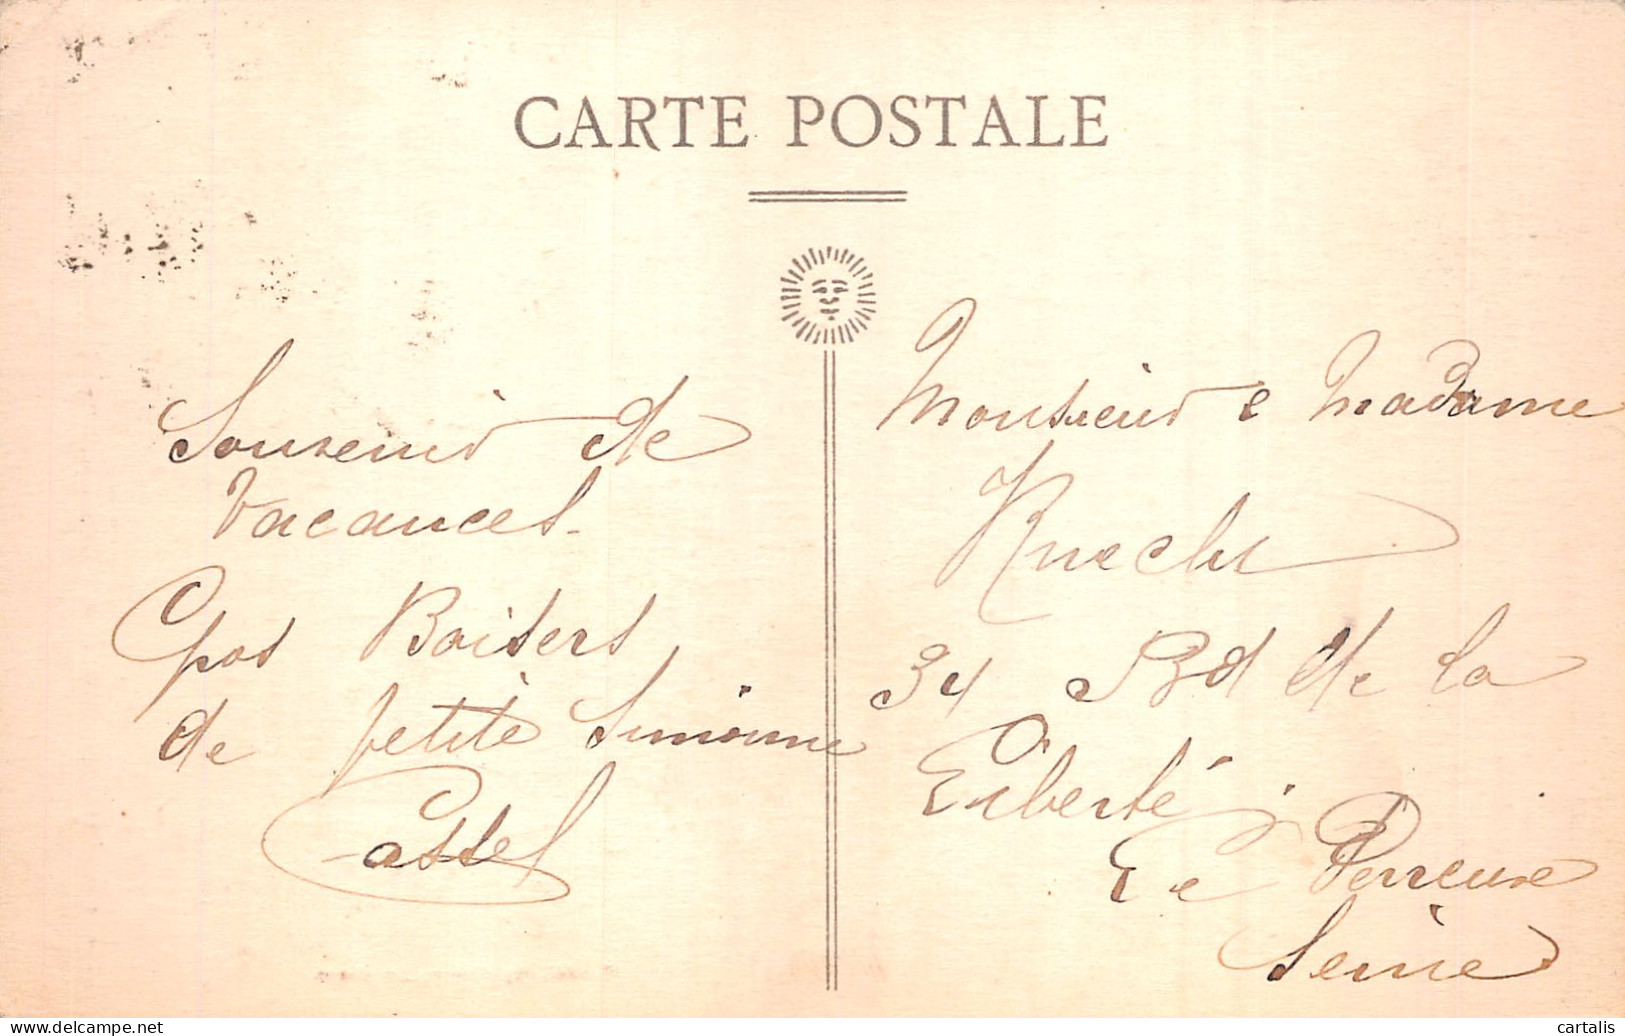 CARTE POSTALE
Souvenir de
Vacances
Gros Baisers
de petite Simonne
Cassel
Monsieur & Madame
Knecht
34 Bd de la
Liberté
Le Perreux
Seine
delcampe.net
cartalis